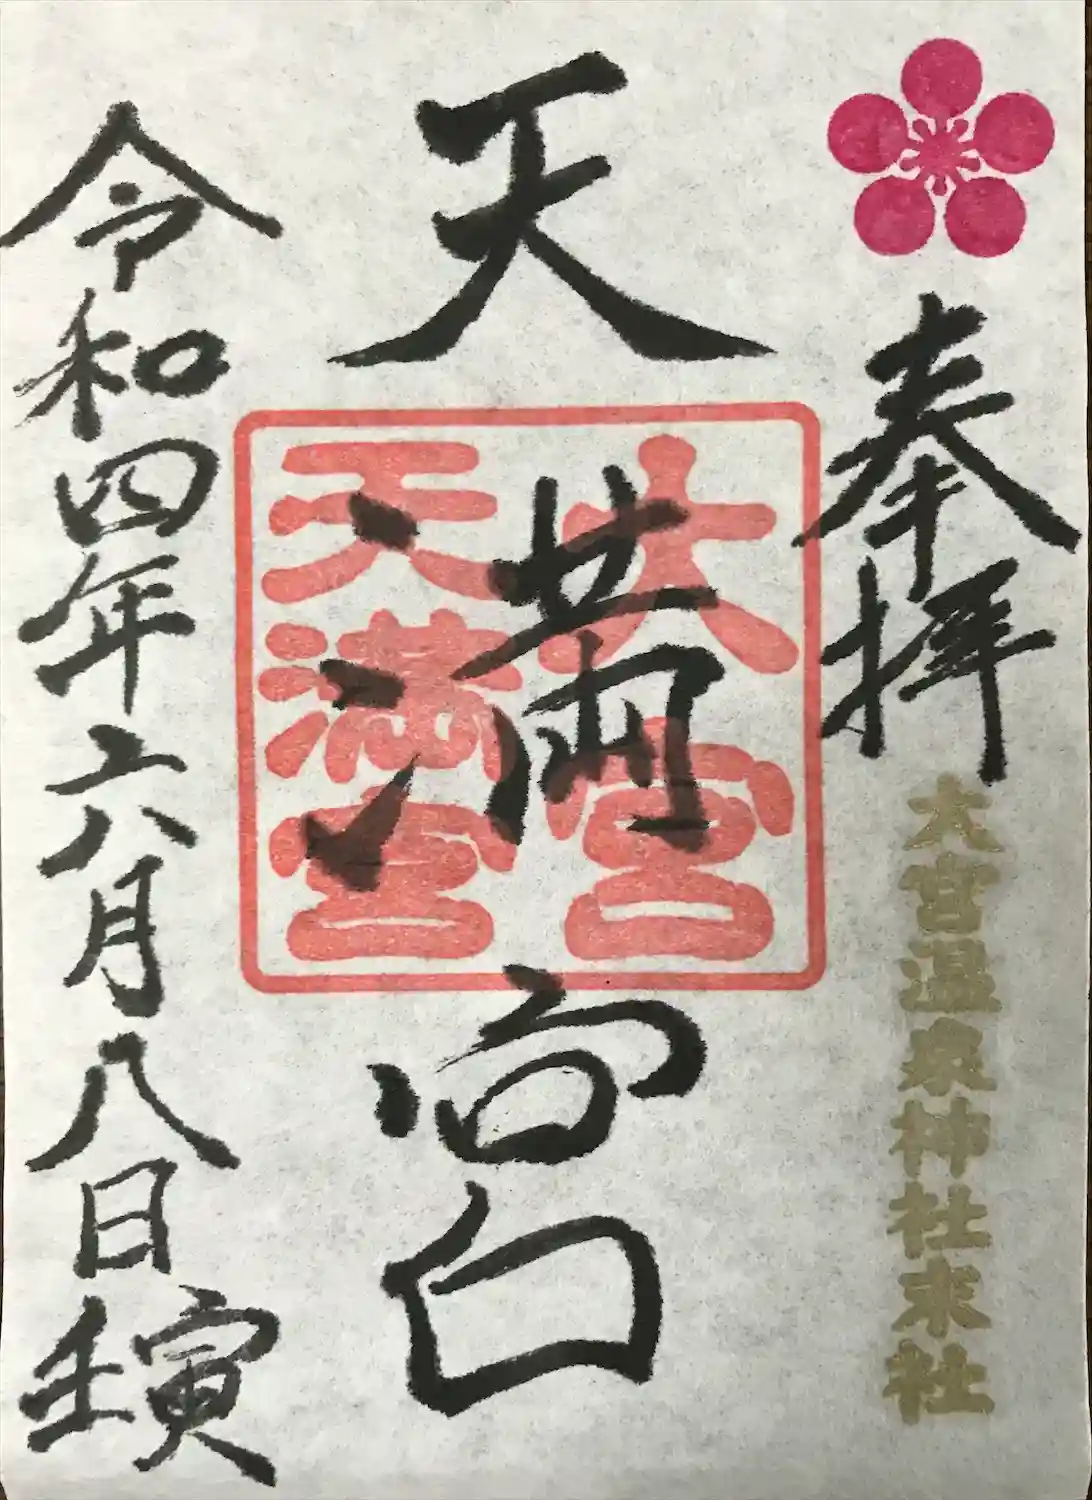 奉拝
大宮温泉神社末社
天満宮
大宮
天満宮
令和四年六月八日壬寅